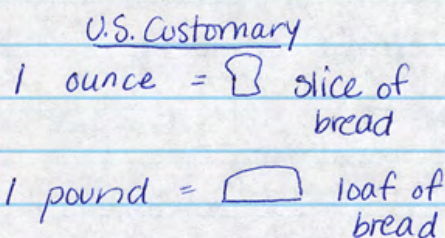 U.S. Customary
1 ounce = slice of
bread
1 pound = loaf of
bread